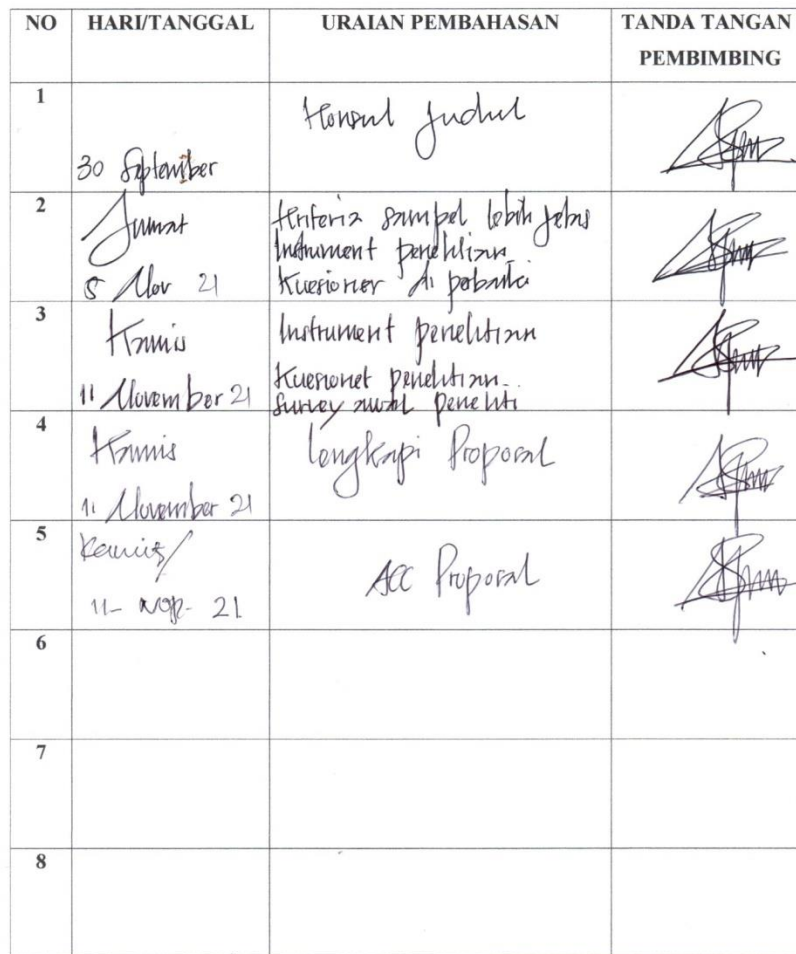 NO HARI/TANGGAL URAIAN PEMBAHASAN TANDA TANGAN
PEMBIMBING
1
Konsul Judul
30 September
2
Jumat
5 Nov 21
Kriteria sampel lebih jelas
Instrument penelitian
Kuesioner di
3
Kamis
11 November 21
Instrument penelitian
Kuesioner penelitian
Survey awal peneliti
4
Kamis
11 November 21
Lengkapi Proposal
5
Kamis/
11- Nop- 21
ACC Proposal
6
7
8